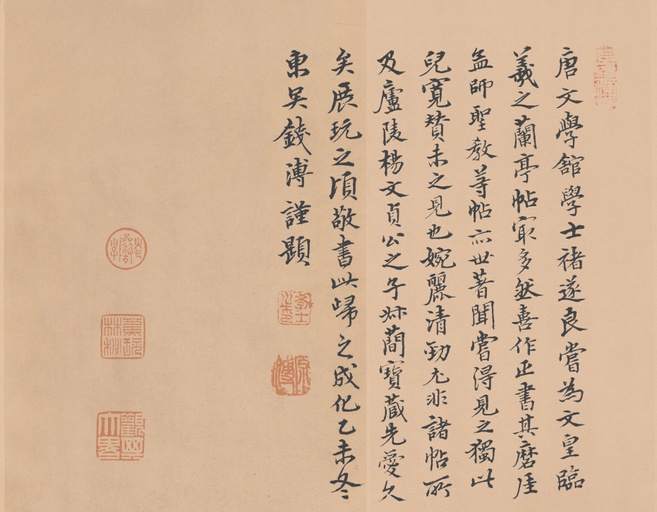 唐文學舘學士褚遂良嘗為文皇臨
羲之蘭亭帖㝡多然善作正書其磨崖
孟師聖教等帖亦世著聞嘗得見之獨此
兒寬贊未之見也婉麗清勁尤非諸帖所
及廬陵楊文貞公之子寶藏先愛久
矣展玩之頃敬書此歸之成化乙未冬
東吳錢溥謹題